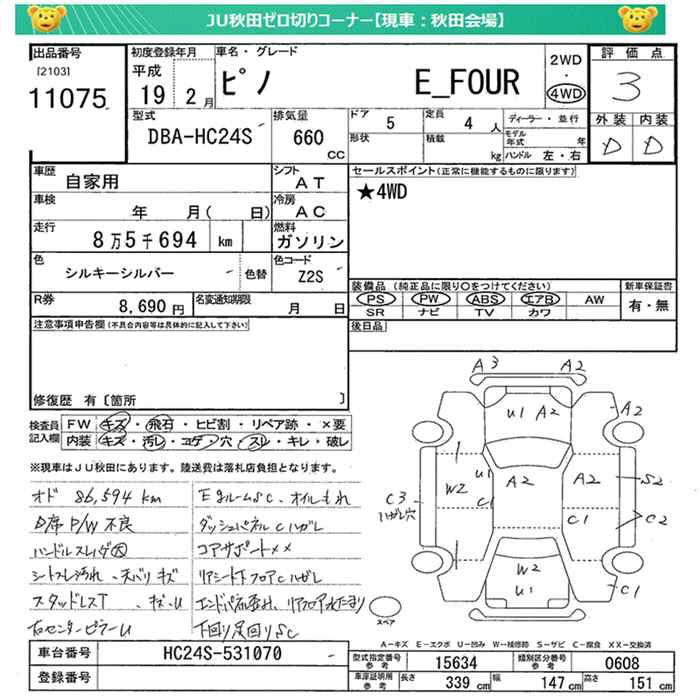 JU秋田ゼロ切りコーナー【現車：秋田会場】
出品番号 初度登録年月 車名・グレード 2WD ・ 4WD 評価点
[2103] 平成
11075 19 2月 ピノ E_FOUR 3
型式 排気量 ドア 5 定員 4 人 ディーラー・並行 外装 内装
DBA-HC24S 660 CC 形状 積載 kg モデル年式 年 ハンドル 左・右 D D
車歴 自家用 シフト AT セールスポイント(正常に機能するものに限ります)
車検 年 月( 日) 冷房 AC ★4WD
走行 8万5千694 km 燃料 ガソリン
色 シルキーシルバー 色替 色コード Z2S
装備品 (純正品に限り○をつけてください) 新車保証書
R券 8,690円 名変通知期限 月 日 PS PW ABS エアB AW 有・無
SR ナビ TV カワ
注意事項申告欄(不具合内容等は具体的に記入して下さい) 後日品
修復歴 有〔箇所 〕
検査員記入欄 FW キズ・飛石・ヒビ割・リペア跡・×要
内装 キズ・汚レ・コゲ・穴・スレ・キレ・破レ
※現車はJU秋田にあります。陸送費は落札店負担となります。
オド 86,594 km
D席 P/W 不良
ハンドルスレ
シートスレ汚れ、天バリ キズ
スタッドレスT
右センターピラーU
EgルームSC、オイルもれ
ダッシュパネルCハガレ
コアサポート××
リアシート下フロアCハガレ
下回り足回りSC
A3 A2
U1 A2 A2
W2 U1 C1 A2 A2 S2
C3 ハガレ穴 C1 C2
W2 U1 C1
スペア
A－キズ E－エクボ U－凹み W－補修跡 S－サビ C－腐食 XX－交換済
車台番号 HC24S-531070 型式指定番号 参考 15634 類別区分番号 参考 0608
登録番号 車庫証明用 参考 長さ 339 cm 幅 147 cm 高さ 151 cm